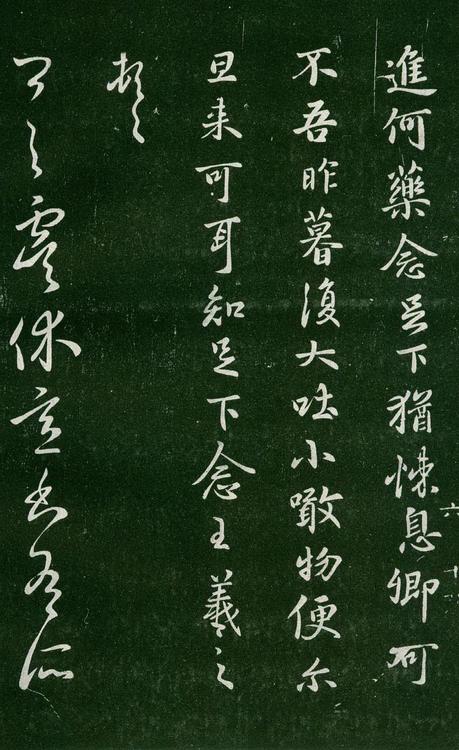 進何藥念足下猶悚息卿可
不吾昨暮復大吐小噉物便尔
旦来可耳知足下念王羲之
頓首
虞休
六
十